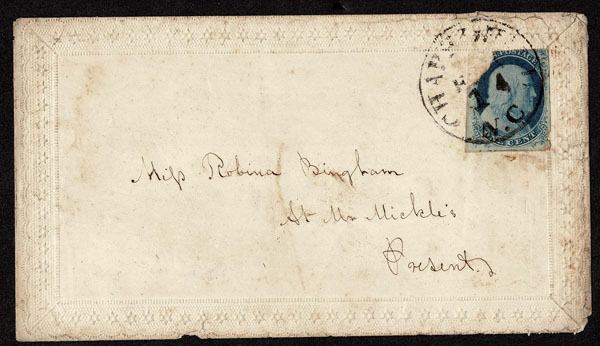 CHAPEL HILL
14
N.C.
POSTAGE
ONE CENT
Miss Robina Bingham
At Mr Mickle's
Present,